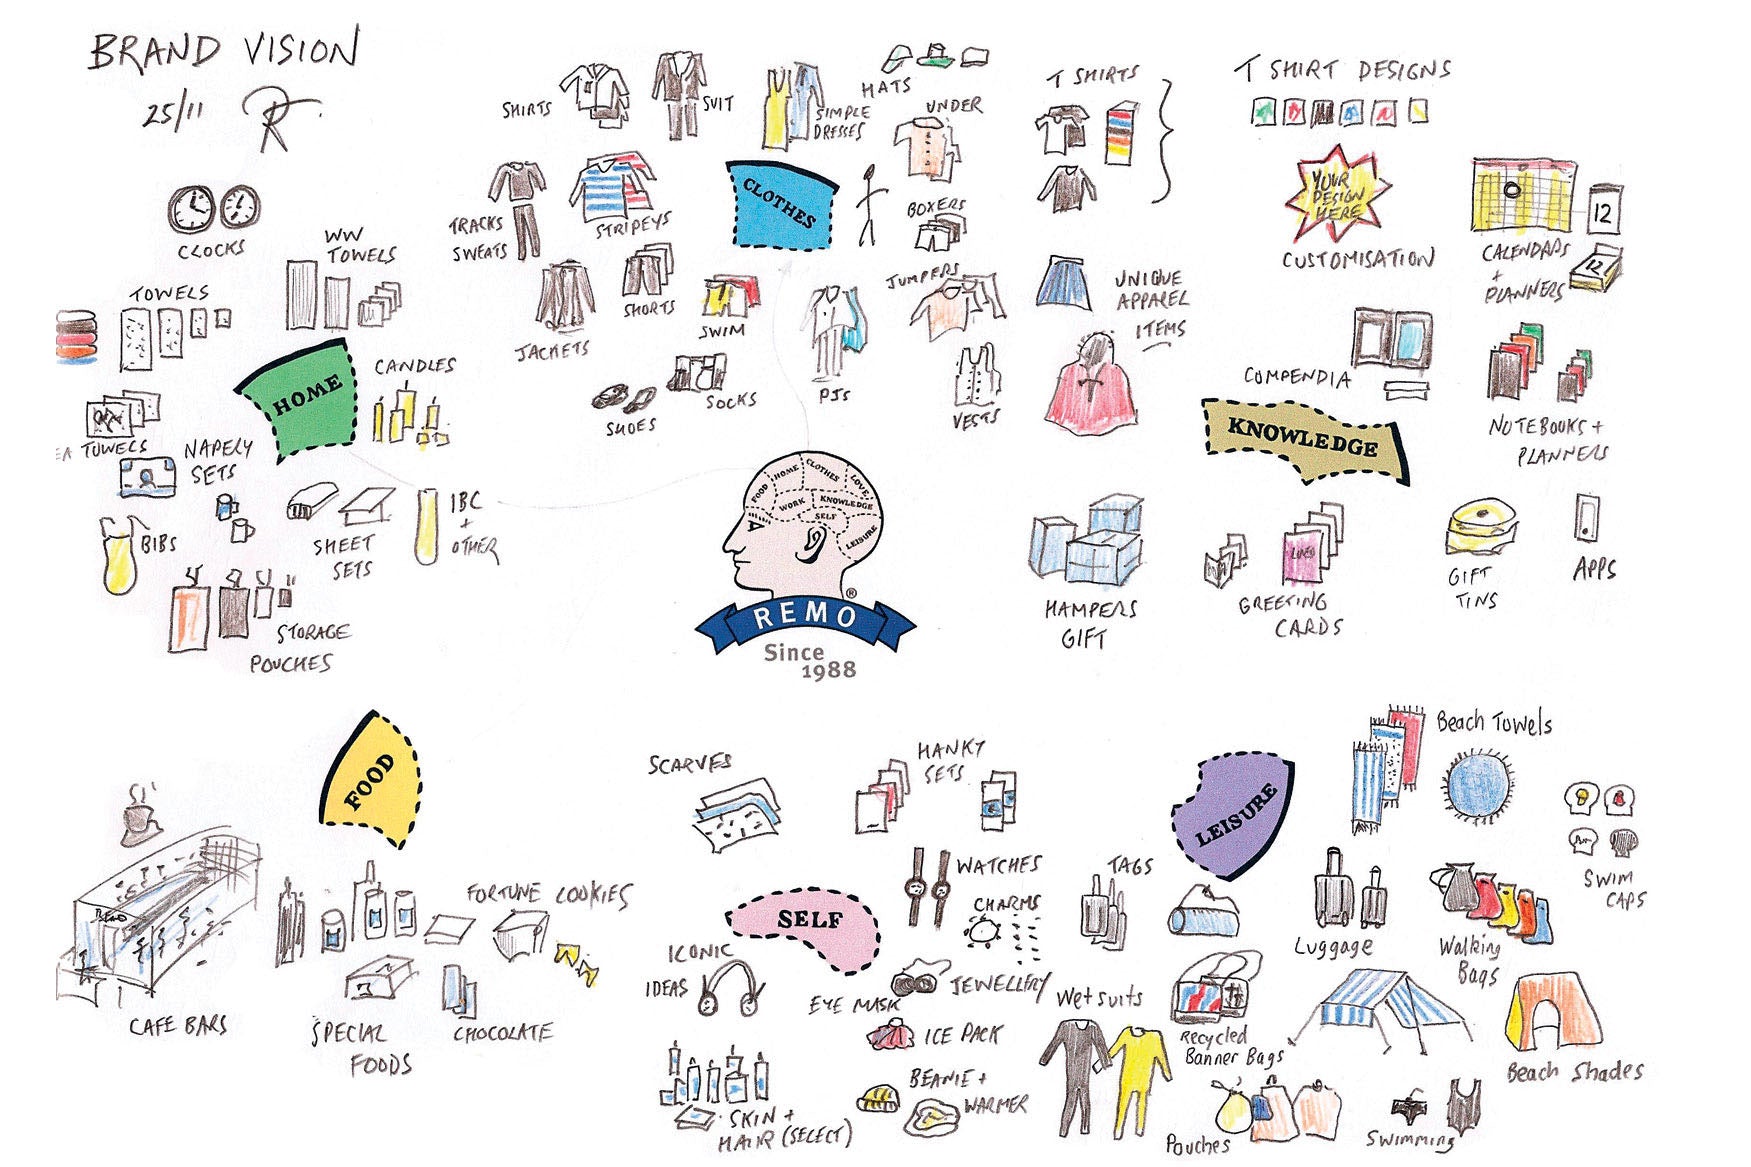 BRAND VISION
25/11
CLOCKS
WW
TOWELS
TOWELS
HOME
CANDLES
TOWELS
NAPERY
SETS
BIBS
SHEET
SETS
IBC
+
OTHER
STORAGE
POUCHES
SHIRTS
SUIT
SIMPLE
DRESSES
HATS
UNDER
TRACKS
SWEATS
STRIPEYS
CLOTHES
BOXERS
JACKETS
SHORTS
SWIM
JUMPERS
SHOES
SOCKS
PJS
VESTS
T SHIRTS
UNIQUE
APPAREL
ITEMS
T SHIRT DESIGNS
YOUR
DESIGN
HERE
CUSTOMISATION
12
12
CALENDARS
+
PLANNERS
COMPENDIA
NOTEBOOKS +
PLANNERS
KNOWLEDGE
HAMPERS
GIFT
GREETING
CARDS
GIFT
TINS
APPS
FOOD
HOME
CLOTHES
LOVE
WORK
KNOWLEDGE
SELF
LEISURE
®
REMO
Since
1988
FOOD
REMO
CAFE BARS
SPECIAL
FOODS
FORTUNE COOKIES
CHOCOLATE
SCARVES
HANKY
SETS
WATCHES
CHARMS
SELF
ICONIC
IDEAS
EYE MASK
JEWELLERY
ICE PACK
SKIN +
HAIR (SELECT)
BEANIE +
WARMER
LEISURE
TAGS
Beach Towels
SWIM
CAPS
Luggage
Walking
Bags
Wetsuits
Recycled
Banner Bags
Beach Shades
Pouches
Swimming